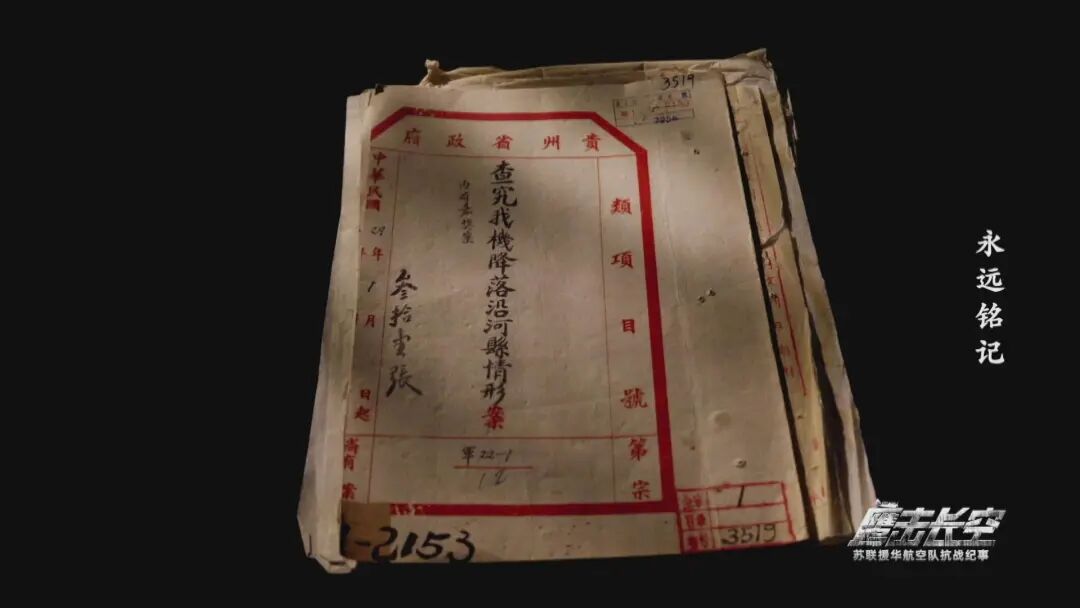 3519
貴州省政府
類項目
號
第 宗
查究我機降落沿河縣情形案
內有嘉獎案
中華民國 29 年 1 月 日起
叁拾壹張
軍22-1
12
1-2153
1
3519
永远铭记
鹰击长空
苏联援华航空队抗战纪事